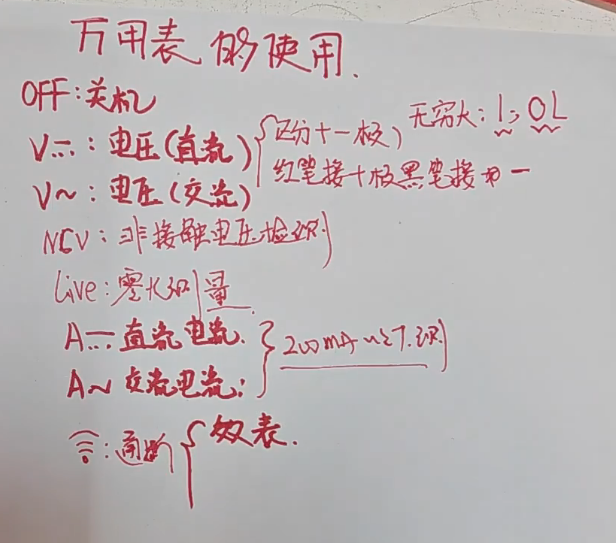 万用表的使用.
OFF:关机 无穷大:1; OL
V⎓:电压(直流) 区分+-极
V~:电压(交流) 红笔接+极黑笔接 -
NCV:非接触电压检测
Live:零火测量
A⎓直流电流. 200mA 以下测
A~交流电流:
:通断 欧表.